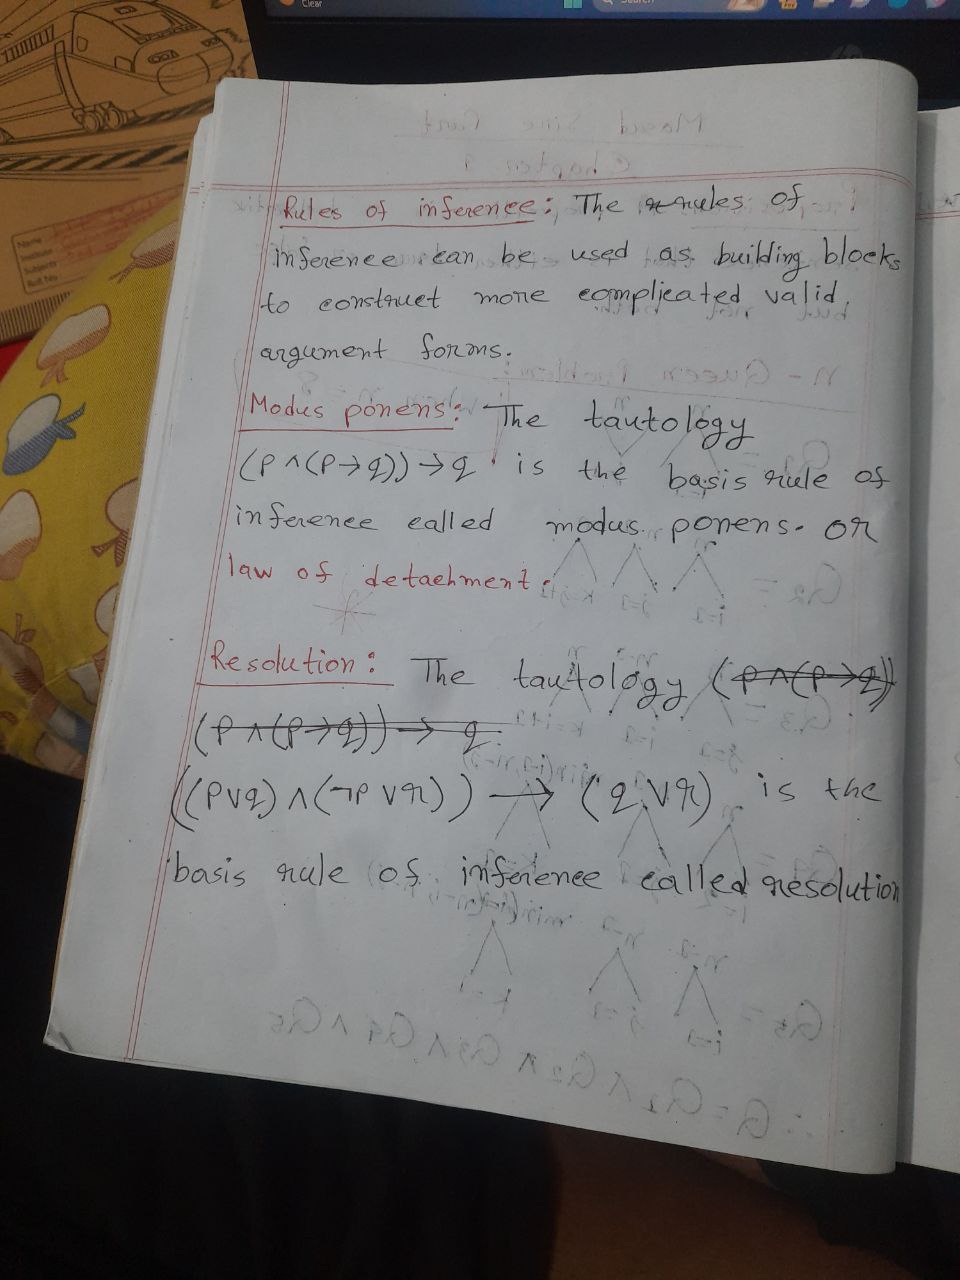 Clear
Search
Name
Institute
Subject
Roll No
Rules of inference: The rules of
inference can be used as building blocks
to construct more complicated valid
argument forms.
Modus ponens: The tautology
(p ∧ (p → q)) → q is the basis rule of
inference called modus ponens. or
law of detachment.
Resolution: The tautology (p ∧ (p → q))
(p ∧ (p → q)) → q
((p ∨ q) ∧ (¬p ∨ r)) → (q ∨ r) is the
basis rule of inference called resolution